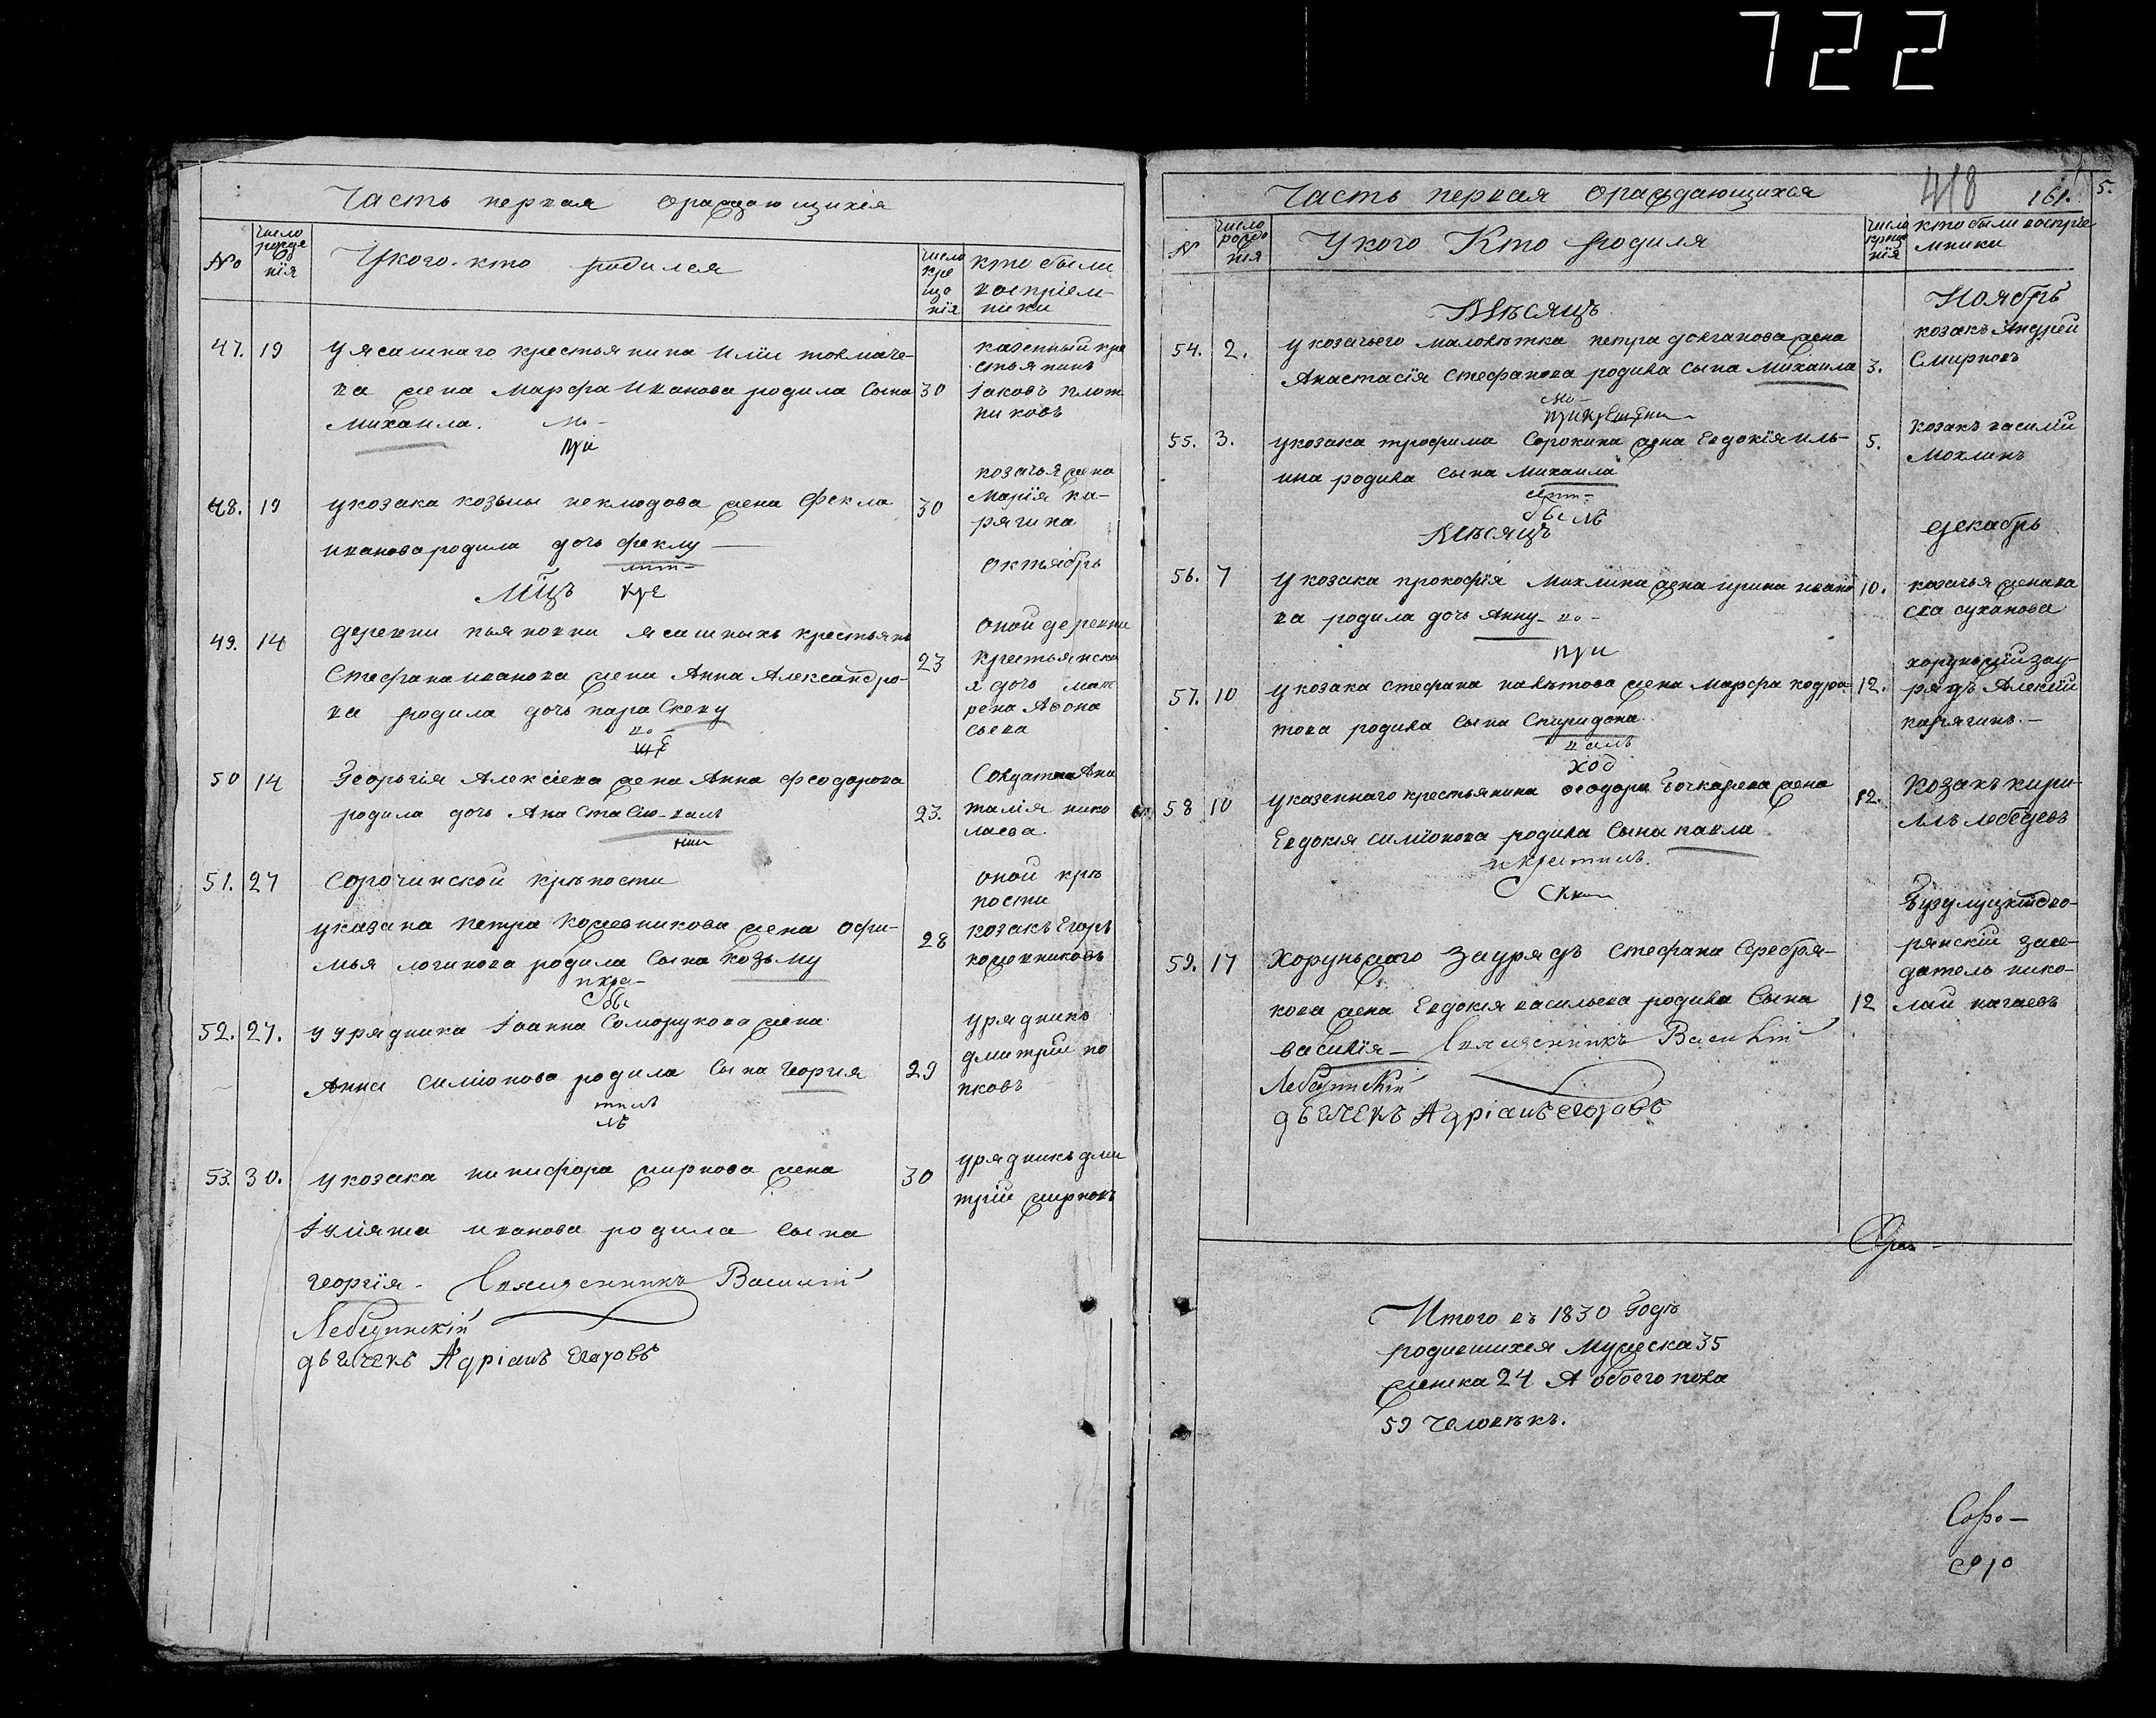 722
Часть первая ораждающихся
№
число рожде нія
Укого кто родился
число кре ще нія
кто были воспріем- ники
47. 19
у ясашнаго крестьянина Иліи толмаче-
ва жена Марфа Иванова родила Сына
михаила.
ми-
при
30
казенный кре
стьянинъ
Іаковъ плот
никовъ
48. 19
укозака козьмы неклюдова жена Фекла
Иванова родила дочь феклу —
30
козачья жена
Марія ка-
рягина
Мцъ
октябрь
49. 14
деревни пьяновки ясашныхъ крестьянъ
Стефана иванова жена Анна Александро-
ва родила дочь параскеву
23
оной деревни
крестьянска
я дочь мав
рена Афона
сьева
50 14
Георгія Алексіева жена Анна феодорова
родила дочь Анастасію - валъ
23.
Солдатка Ана
талія нико
лаева
51. 27
Сорочинской крѣпости
указака Петра Кожевникова жена Офи-
мья логинова родила Сына козьму
28
оной крѣ
пости
козакъ Егоръ
кожевниковъ
52. 27.
у урядника Іоанна Соморукова жена
Анна Симіонова родила Сына Георгія
тилъ
лъ
29
урядникъ
дмитрій по
пковъ
53. 30.
укозака никифора жирнова жена
Іулiяна иванова родила сына
георгія - Священникъ Василій
Лебединскій
дьячекъ Адріанъ Егоровъ
30
урядникъ дми
трій жирновъ
Часть первая ораждающихся
418
161.
5.
№
число рожде нія
Укого Кто родился
число креще нія
кто были воспріе мники
Мѣсяцъ
Ноябрь
54. 2.
у козачьего малолѣтка петра долганова жена
Анастасія Стефанова родила сына Михаила
3.
козакъ Андрей
Смирновъ
55. 3.
укозака трофима Сорокина жена Евдокія иль-
ина родила сына михаила
5.
козакъ василій
Мохлинъ
Мѣсяцъ
декабрь
56. 7
Укозака прокофія Мохлина жена ирина ивано
ва родила дочь Анну - во -
при
10.
козачья жена ва
сса суханова
57. 10
укозака стефана налѣтова жена марфа кодра-
това родила сына Спиридона.
валъ
ход
12.
хорунжій зау-
рядъ Алексій
карягинъ. —
58 10
указеннаго крестьянина феодора Бочкарева жена
Евдокія симіонова родила Сына павла
и крестилъ.
12.
Козакъ кири-
лъ лебедевъ
59. 17
Хорунжаго Заурядъ Стефана Серебря-
кова жена Евдокія васильева родила Сына
василія — Священникъ Василій
Лебединскій
дьячекъ Адріанъ Егоровъ
12
Бузулуцкій дво-
рянскій засе-
датель нико-
лай нагаевъ
Итого въ 1830 Годѣ
родившихся Мужеска 35
женска 24 А обоего пола
59 человѣкъ.